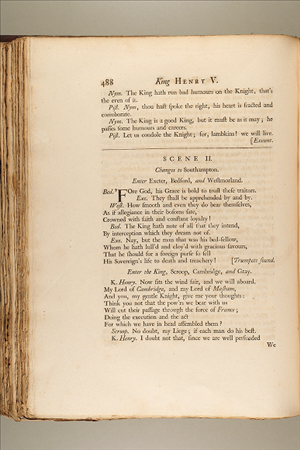 488 King HENRY V.
Nym. The King hath run bad humours on the Knight, that's
the even of it.
Pist. Nym, thou hast spoke the right, his heart is fracted and
corroborate.
Nym. The King is a good King, but it must be as it may; he
passes some humours and careers.
Pist. Let us condole the Knight; for, lambkins! we will live.
[Exeunt.
SCENE II.
Changes to Southampton.
Enter Exeter, Bedford, and Westmorland.
Bed. 'FOre God, his Grace is bold to trust these traitors.
Exe. They shall be apprehended by and by.
West. How smooth and even they do bear themselves,
As if allegiance in their bosoms sate,
Crowned with faith and constant loyalty!
Bed. The King hath note of all that they intend,
By interception which they dream not of.
Exe. Nay, but the man that was his bed-fellow,
Whom he hath lull'd and cloy'd with gracious favours,
That he should for a foreign purse so sell
His Sovereign's life to death and treachery! [Trumpets sound.
Enter the King, Scroop, Cambridge, and Gray.
K. Henry. Now sits the wind fair, and we will aboard.
My Lord of Cambridge, and my Lord of Masham,
And you, my gentle Knight, give me your thoughts:
Think you not that the pow'rs we bear with us
Will cut their passage through the force of France;
Doing the execution and the act
For which we have in head assembled them?
Scroop. No doubt, my Liege; if each man do his best.
K. Henry. I doubt not that, since we are well persuaded
We